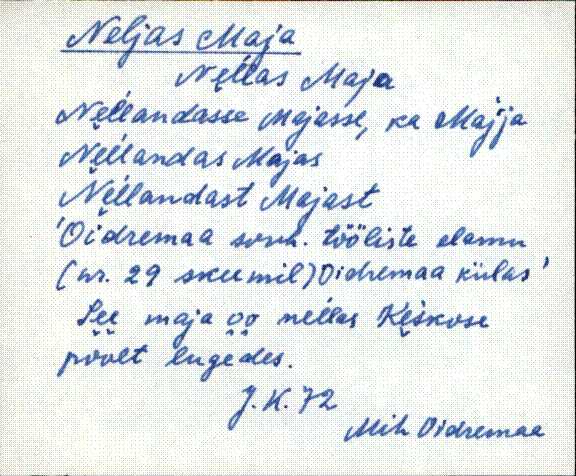 Neljas Maja
Nęĺlas Maja
Nęĺlandasse Majasse, ka Majja
Nęĺlandas Majas
Nęĺlandast Majast
'Oidremaa sovh. tööliste elamu
(nr. 29 skeemil) Oidremaa külas'
See maja oo neĺlas Kęskose
poolt lugedes.
J.K. 72
Mih Oidremaa